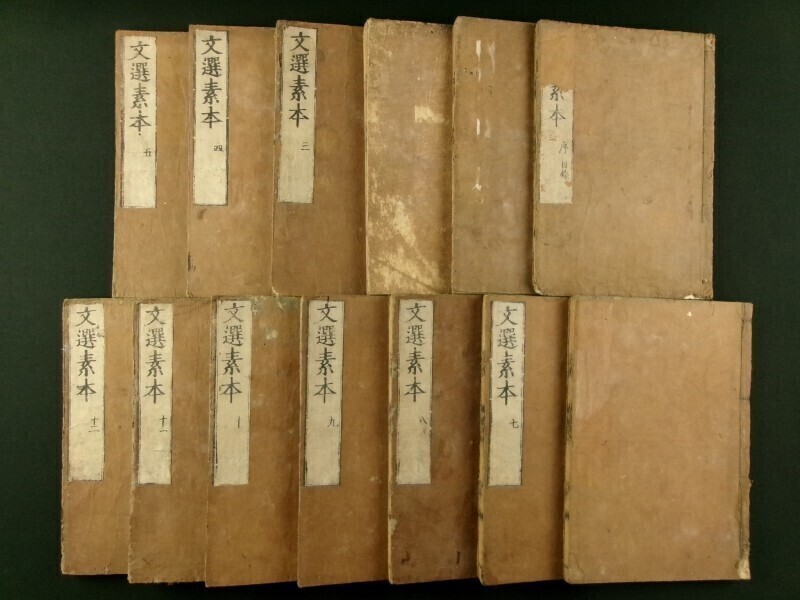 素本
序目錄
文選素本
三
文選素本
四
文選素本
五
文選素本
七
文選素本
八
文選素本
九
文選素本
十
文選素本
十一
文選素本
十二